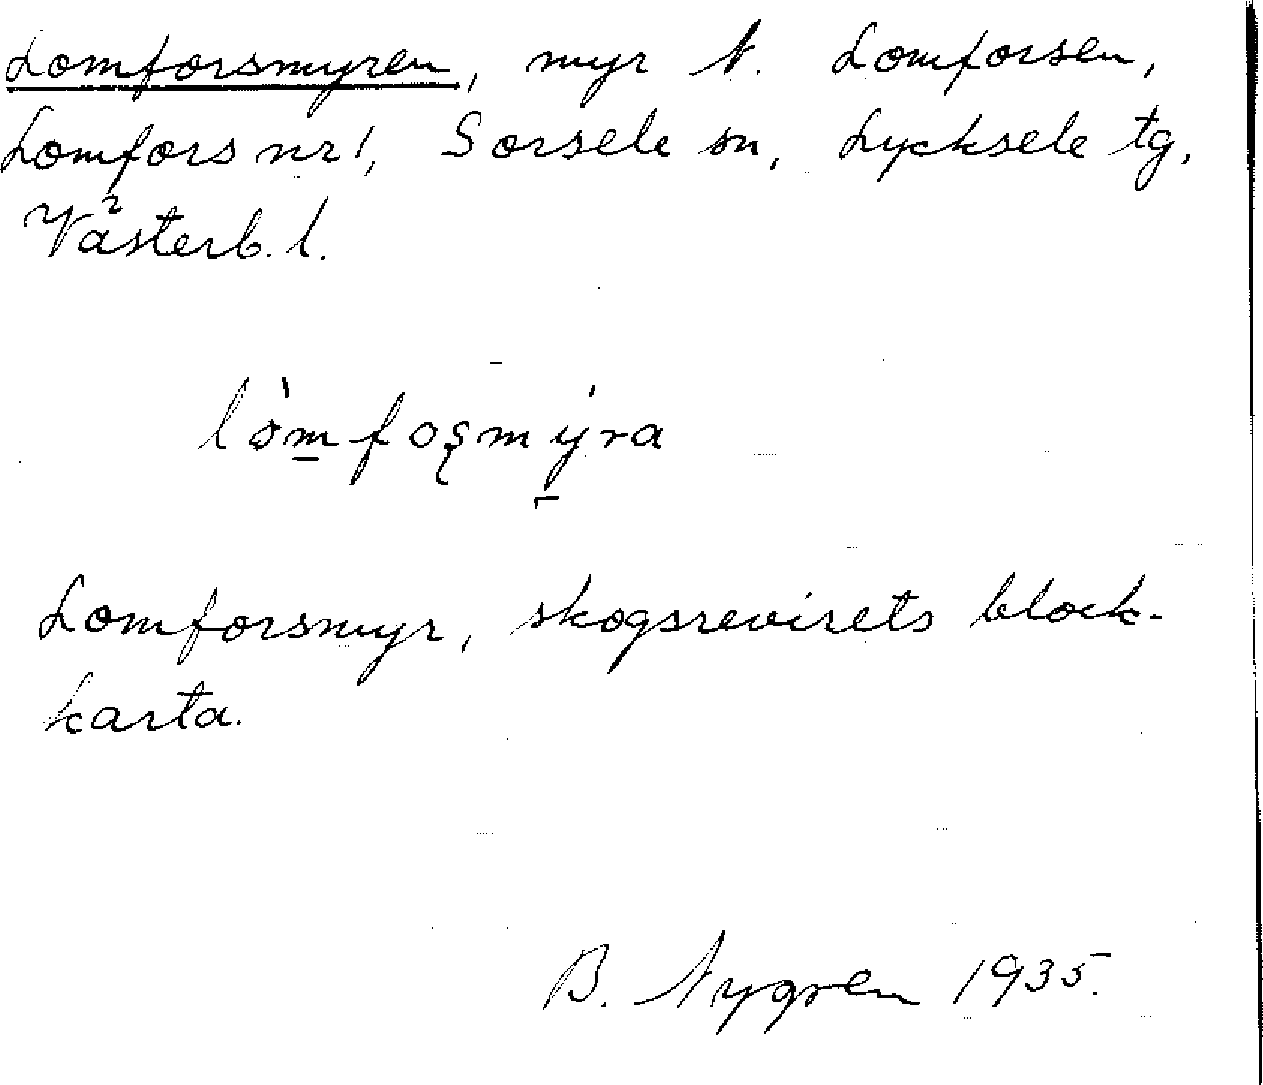 Lomforsmyren, myr N. Lomforsen,
Lomfors nr 1, Sorsele sn, Lycksele tg,
Västerb. l.
lòm̲foşmýra
Lomforsmyr, skogsrevirets block-
karta.
B. Nygren 1935.